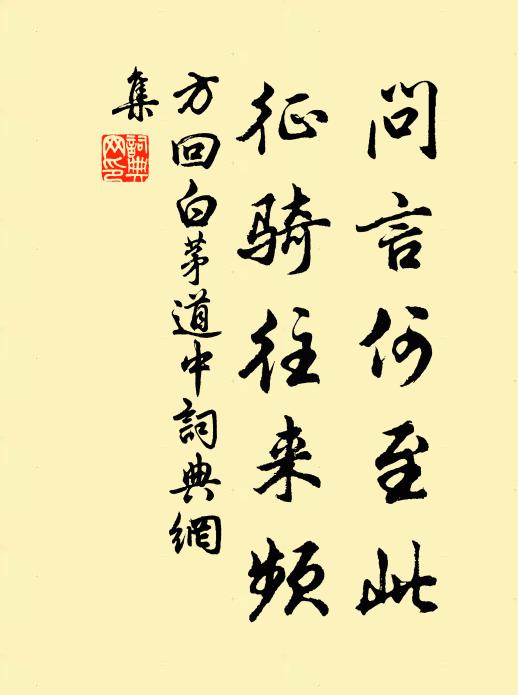 问言何至此
征骑往来频
方回白茅道中詞典網
集
詞典
网印